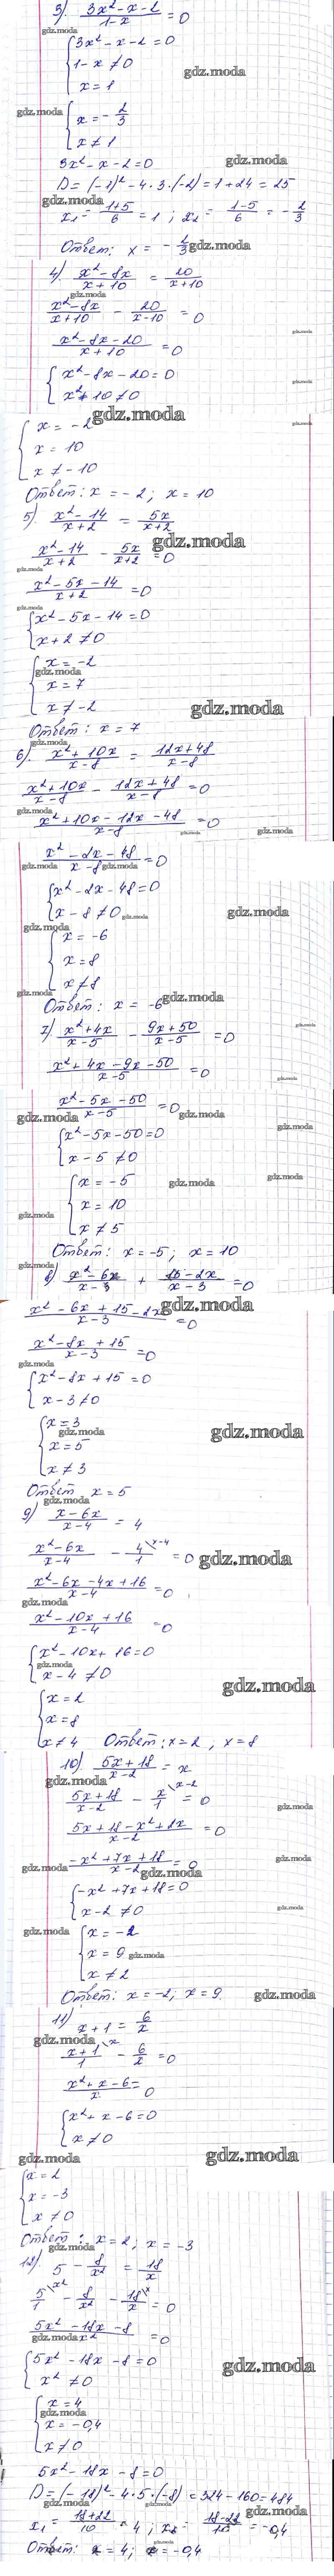 3) (3x² - x - 2)/(1 - x) = 0
gdz.moda
{ 3x² - x - 2 = 0
1 - x ≠ 0
gdz.moda
x = 1
gdz.moda
{ x = - 2/3
x ≠ 1
3x² - x - 2 = 0
gdz.moda
D = (-1)² - 4·3·(-2) = 1 + 24 = 25
gdz.moda
x₁ = (1+5)/6 = 1 ; x₂ = (1-5)/6 = - 2/3
Ответ: x = - 2/3
gdz.moda
4) (x² - 8x)/(x + 10) = 20/(x + 10)
gdz.moda
(x² - 8x)/(x + 10) - 20/(x - 10) = 0
gdz.moda
(x² - 8x - 20)/(x + 10) = 0
{ x² - 8x - 20 = 0
x² + 10 ≠ 0
gdz.moda
gdz.moda
{ x = -2
x = 10
x ≠ -10
Ответ: x = -2; x = 10
5) (x² - 14)/(x + 2) = 5x/(x + 2)
gdz.moda
(x² - 14)/(x + 2) - 5x/(x + 2) = 0
gdz.moda
(x² - 5x - 14)/(x + 2) = 0
gdz.moda
{ x² - 5x - 14 = 0
x + 2 ≠ 0
{ x = -2
gdz.moda
x = 7
x ≠ -2
gdz.moda
Ответ: x = 7
gdz.moda
6) (x² + 10x)/(x - 8) = (12x + 48)/(x - 8)
(x² + 10x)/(x - 8) - (12x + 48)/(x - 8) = 0
gdz.moda
(x² + 10x - 12x - 48)/(x - 8) = 0
gdz.moda gdz.moda
(x² - 2x - 48)/(x - 8) = 0
gdz.moda gdz.moda
{ x² - 2x - 48 = 0
x - 8 ≠ 0
gdz.moda gdz.moda
gdz.moda
{ x = -6
x = 8
x ≠ 8
gdz.moda
Ответ: x = -6
gdz.moda
7) (x² + 4x)/(x - 5) - (9x + 50)/(x - 5) = 0
gdz.moda
(x² + 4x - 9x - 50)/(x - 5) = 0
gdz.moda
(x² - 5x - 50)/(x - 5) = 0
gdz.moda gdz.moda
{ x² - 5x - 50 = 0
gdz.moda
x - 5 ≠ 0
{ x = -5
gdz.moda gdz.moda
x = 10
gdz.moda
x ≠ 5
Ответ: x = -5; x = 10
gdz.moda
8) (x² - 6x)/(x - 3) + (15 - 2x)/(x - 3) = 0
gdz.moda
(x² - 6x + 15 - 2x)/(x - 3) = 0
(x² - 8x + 15)/(x - 3) = 0
gdz.moda
{ x² - 8x + 15 = 0
x - 3 ≠ 0
{ x = 3
gdz.moda gdz.moda
x = 5
x ≠ 3
Ответ x = 5
gdz.moda
9) (x - 6x)/(x - 4) = 4
(x² - 6x)/(x - 4) - 4/1 \x-4 = 0
gdz.moda
(x² - 6x - 4x + 16)/(x - 4) = 0
gdz.moda
(x² - 10x + 16)/(x - 4) = 0
{ x² - 10x + 16 = 0
gdz.moda
x - 4 ≠ 0
gdz.moda
{ x = 2
x = 8
x ≠ 4 Ответ: x = 2, x = 8
10) (5x + 18)/(x - 2) = x
gdz.moda
(5x + 18)/(x - 2) - x/1 \x-2 = 0
gdz.moda
(5x + 18 - x² + 2x)/(x - 2) = 0
(-x² + 7x + 18)/(x - 2) = 0
gdz.moda gdz.moda
gdz.moda
{ -x² + 7x + 18 = 0
x - 2 ≠ 0
gdz.moda
gdz.moda
{ x = -2
x = 9
gdz.moda
x ≠ 2
Ответ: x = -2; x = 9.
gdz.moda
11) x + 1 = 6/x
gdz.moda
(x + 1)/1 \x - 6/x = 0
(x² + x - 6)/x = 0
{ x² + x - 6 = 0
x ≠ 0
gdz.moda gdz.moda
{ x = 2
x = -3
x ≠ 0
Ответ: x = 2; x = -3
gdz.moda
12) 5 - 8/x² = 18/x
5/1 \x² - 8/x² - 18/x \x = 0
(5x² - 18x - 8)/x² = 0
gdz.moda
{ 5x² - 18x - 8 = 0
gdz.moda
x² ≠ 0
{ x = 4
gdz.moda
x = -0,4
x ≠ 0
5x² - 18x - 8 = 0
gdz.moda
D = (-18)² - 4·5·(-8) = 324 - 160 = 484
gdz.moda gdz.moda
x₁ = (18+22)/10 = 4 ; x₂ = (18-22)/10 = -0,4
gdz.moda
Ответ: x = 4; x = -0,4
gdz.moda